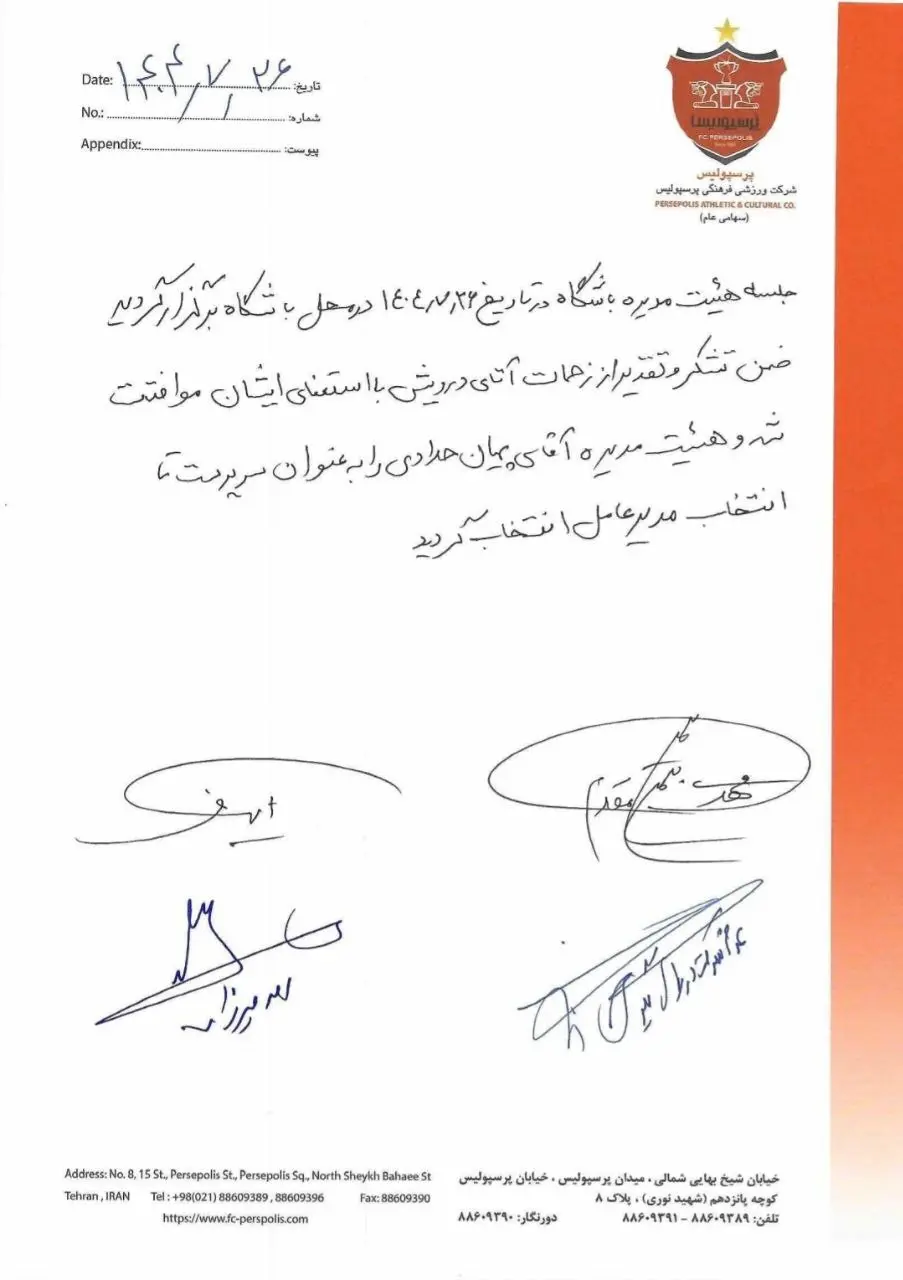 Date: ۱۴۰۴/۷/۲۶ تاریخ:
No.: ۱ شماره:
Appendix: پیوست:
پرسپولیس
FC PERSEPOLIS
پرسپولیس
شرکت ورزشی فرهنگی پرسپولیس
PERSEPOLIS ATHLETIC & CULTURAL CO.
(سهامی عام)
جلسه هیئت مدیره باشگاه در تاریخ ۱۴۰۴/۷/۲۶ در محل باشگاه برگزار گردید
ضمن تشکر و تقدیر از زحمات آقای درویش با استعفای ایشان موافقت
شد و هیئت مدیره آقای پیمان حدادی را به عنوان سرپرست تا
انتخاب مدیرعامل انتخاب گردید
Address: No. 8, 15 St., Persepolis St., Persepolis Sq., North Sheykh Bahaee St
Tehran , IRAN Tel : +98(021) 88609389 , 88609396 Fax: 88609390
https://www.fc-perspolis.com
خیابان شیخ بهایی شمالی ، میدان پرسپولیس ، خیابان پرسپولیس
کوچه پانزدهم (شهید نوری) ، پلاک ۸
تلفن: ۸۸۶۰۹۳۸۹ - ۸۸۶۰۹۳۹۱ دورنگار: ۸۸۶۰۹۳۹۰